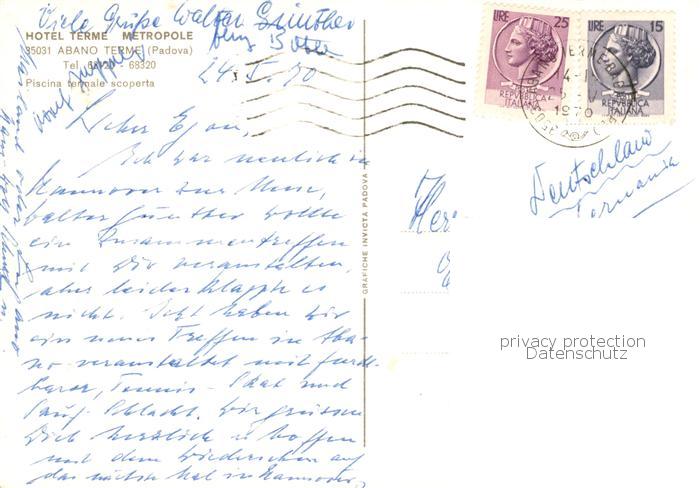 Viele Grüße Walter Günther
HOTEL TERME METROPOLE
35031 ABANO TERME (Padova)
Tel. 68120 - 68320
Piscina termale scoperta
24.5.70
Lieber Egon,
Ich war neulich in
Hannover zur Messe,
Walter Günther wollte
ein Zusammentreffen
mit Dir veranstalten,
aber leider klappte es
nicht. Jetzt haben wir
ein neues Treffen in Aba-
no veranstaltet mit
Tennis- Skat und
Sauf- Schlacht. Wir grüssen
Dich herzlich u. hoffen
auf
das nächste Mal in Hannover.
GRAFICHE INVICTA PADOVA
LIRE 25
REPUBBLICA
ITALIANA
LIRE 15
REPUBBLICA
ITALIANA
1970
Deutschland
Germania
Her
privacy protection
Datenschutz